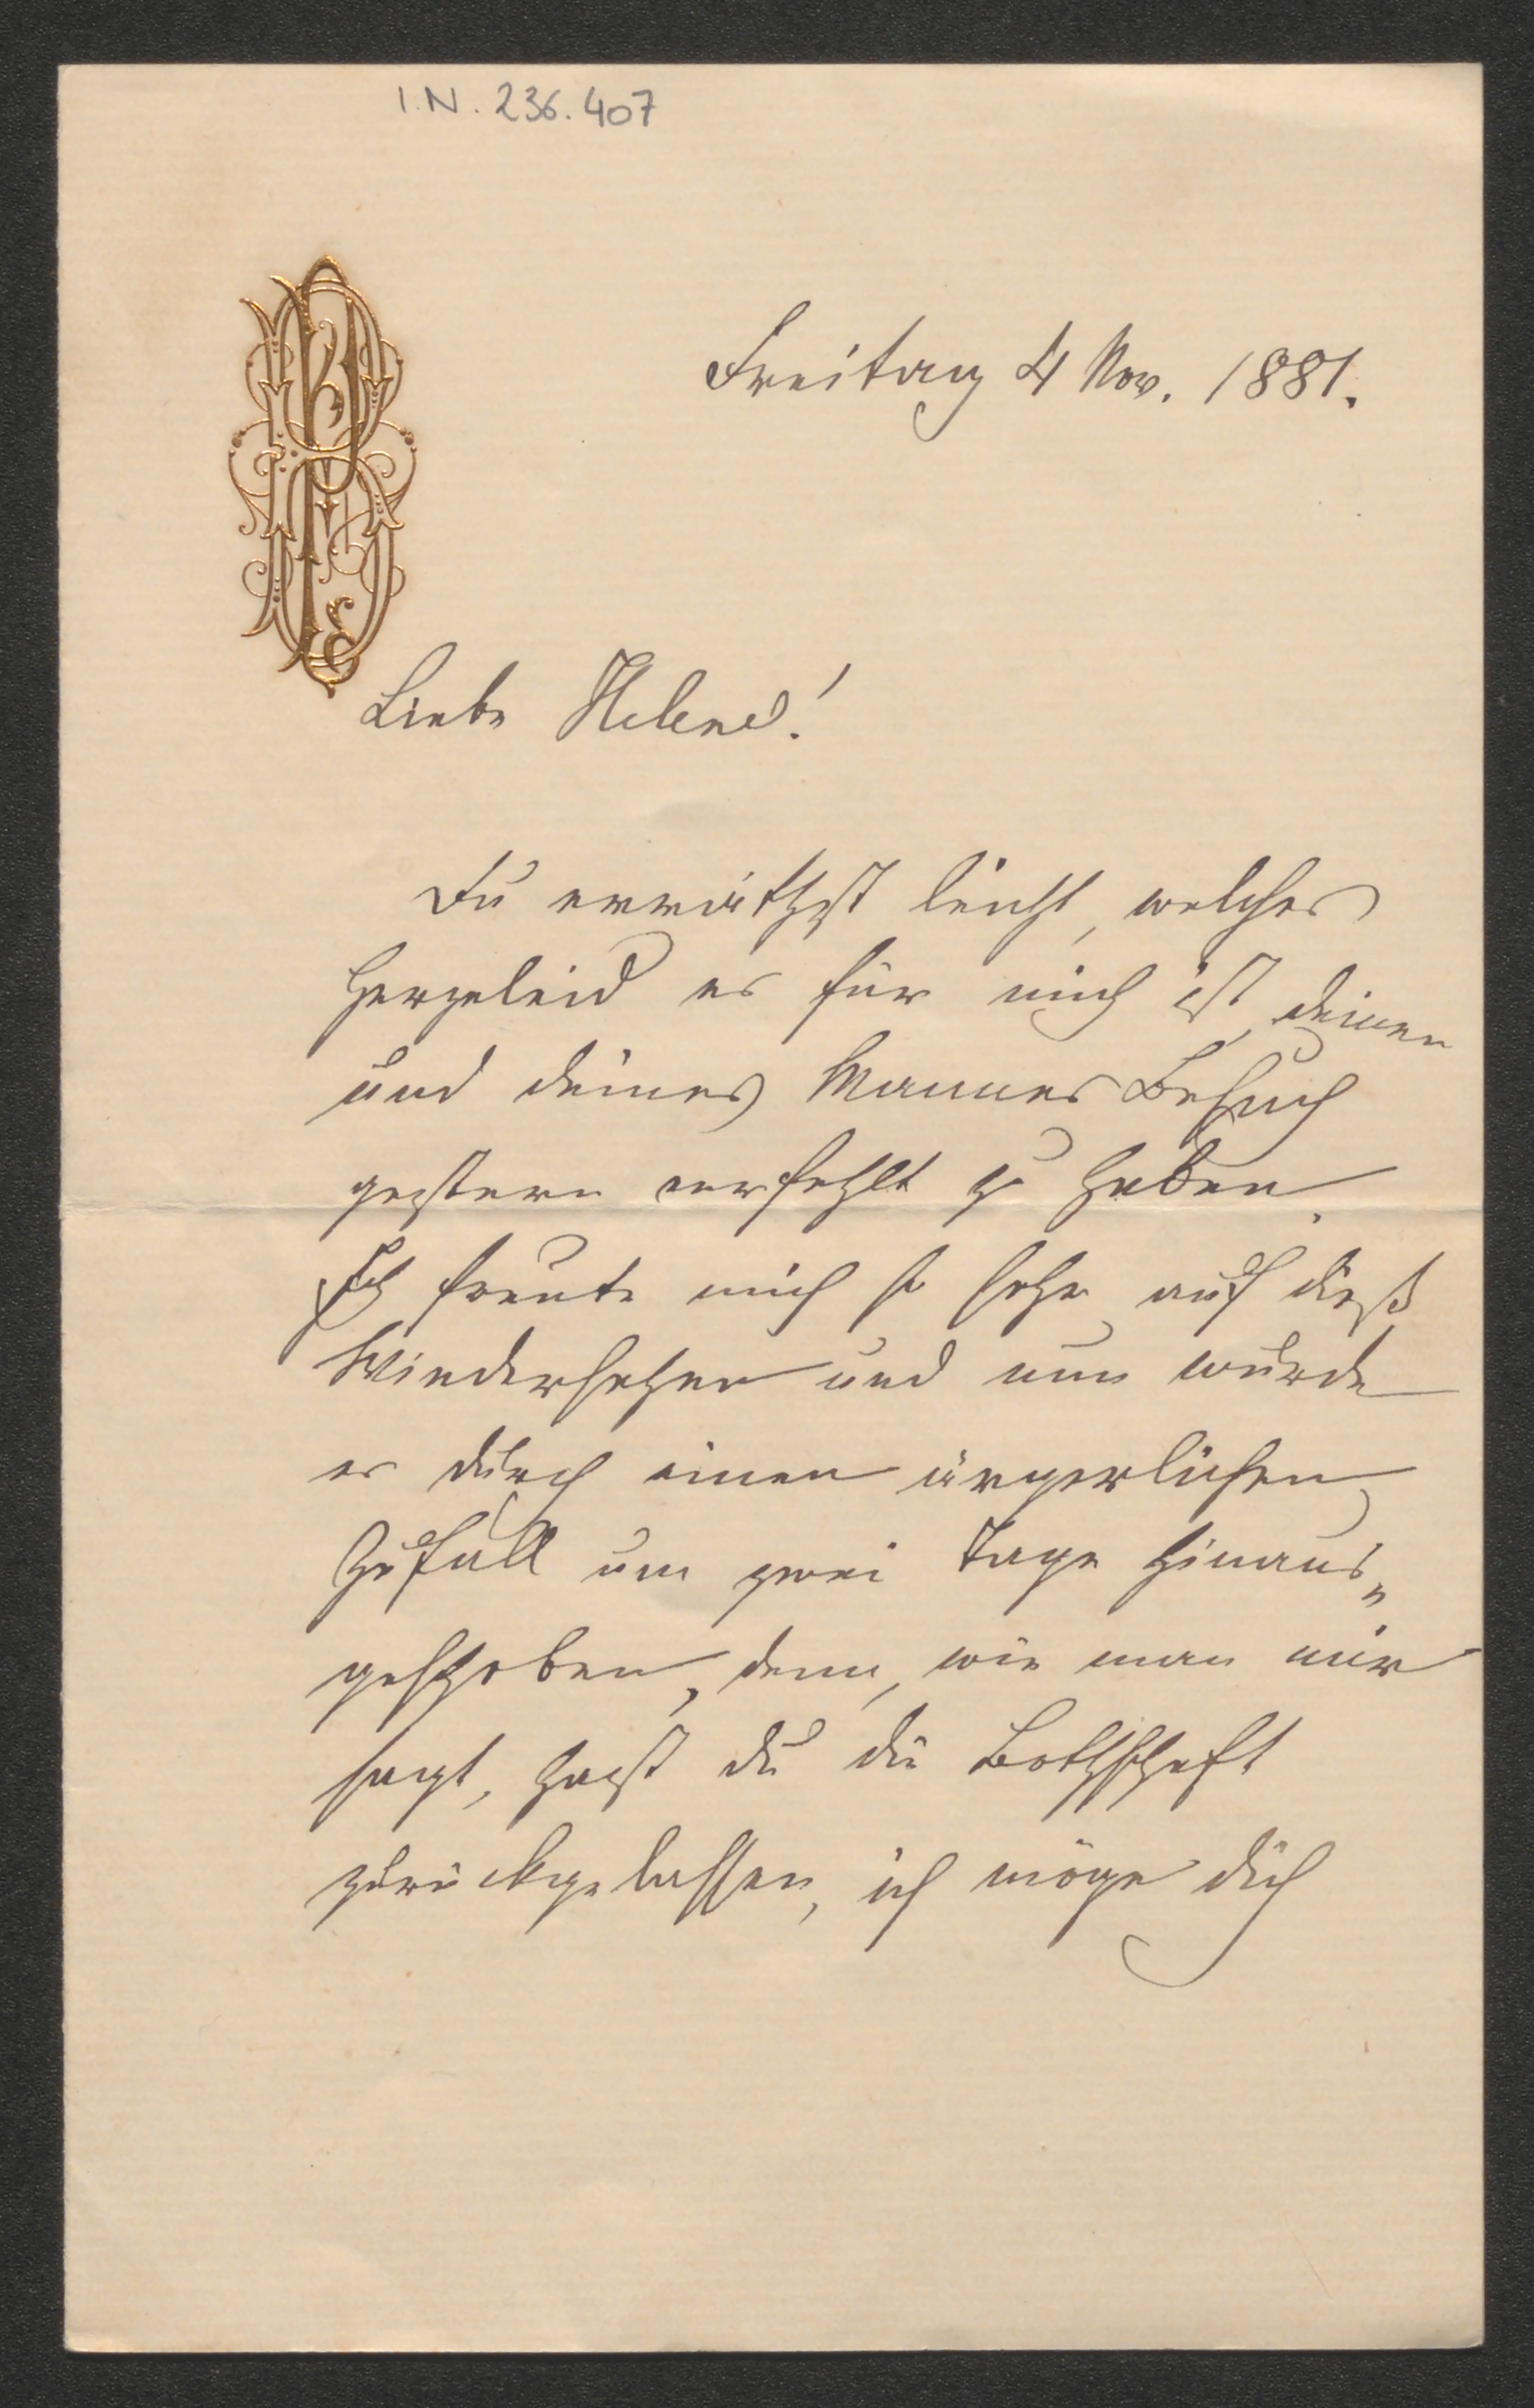 I.N. 236.407
Freitag 4 Nov. 1881.
Liebe Helene!
Du erräthst leicht, welches
Herzeleid es für mich ist, deinen
und deines Mannes Besuch
gestern verfehlt zu haben.
Ich freute mich so sehr auf dieß
Wiedersehen und nun wurde
es durch einen ärgerlichen
Zufall um zwei Tage hinaus„
geschoben, denn, wie man mir
sagt, hast du die Bothschaft
zurückgelassen, ich möge dich